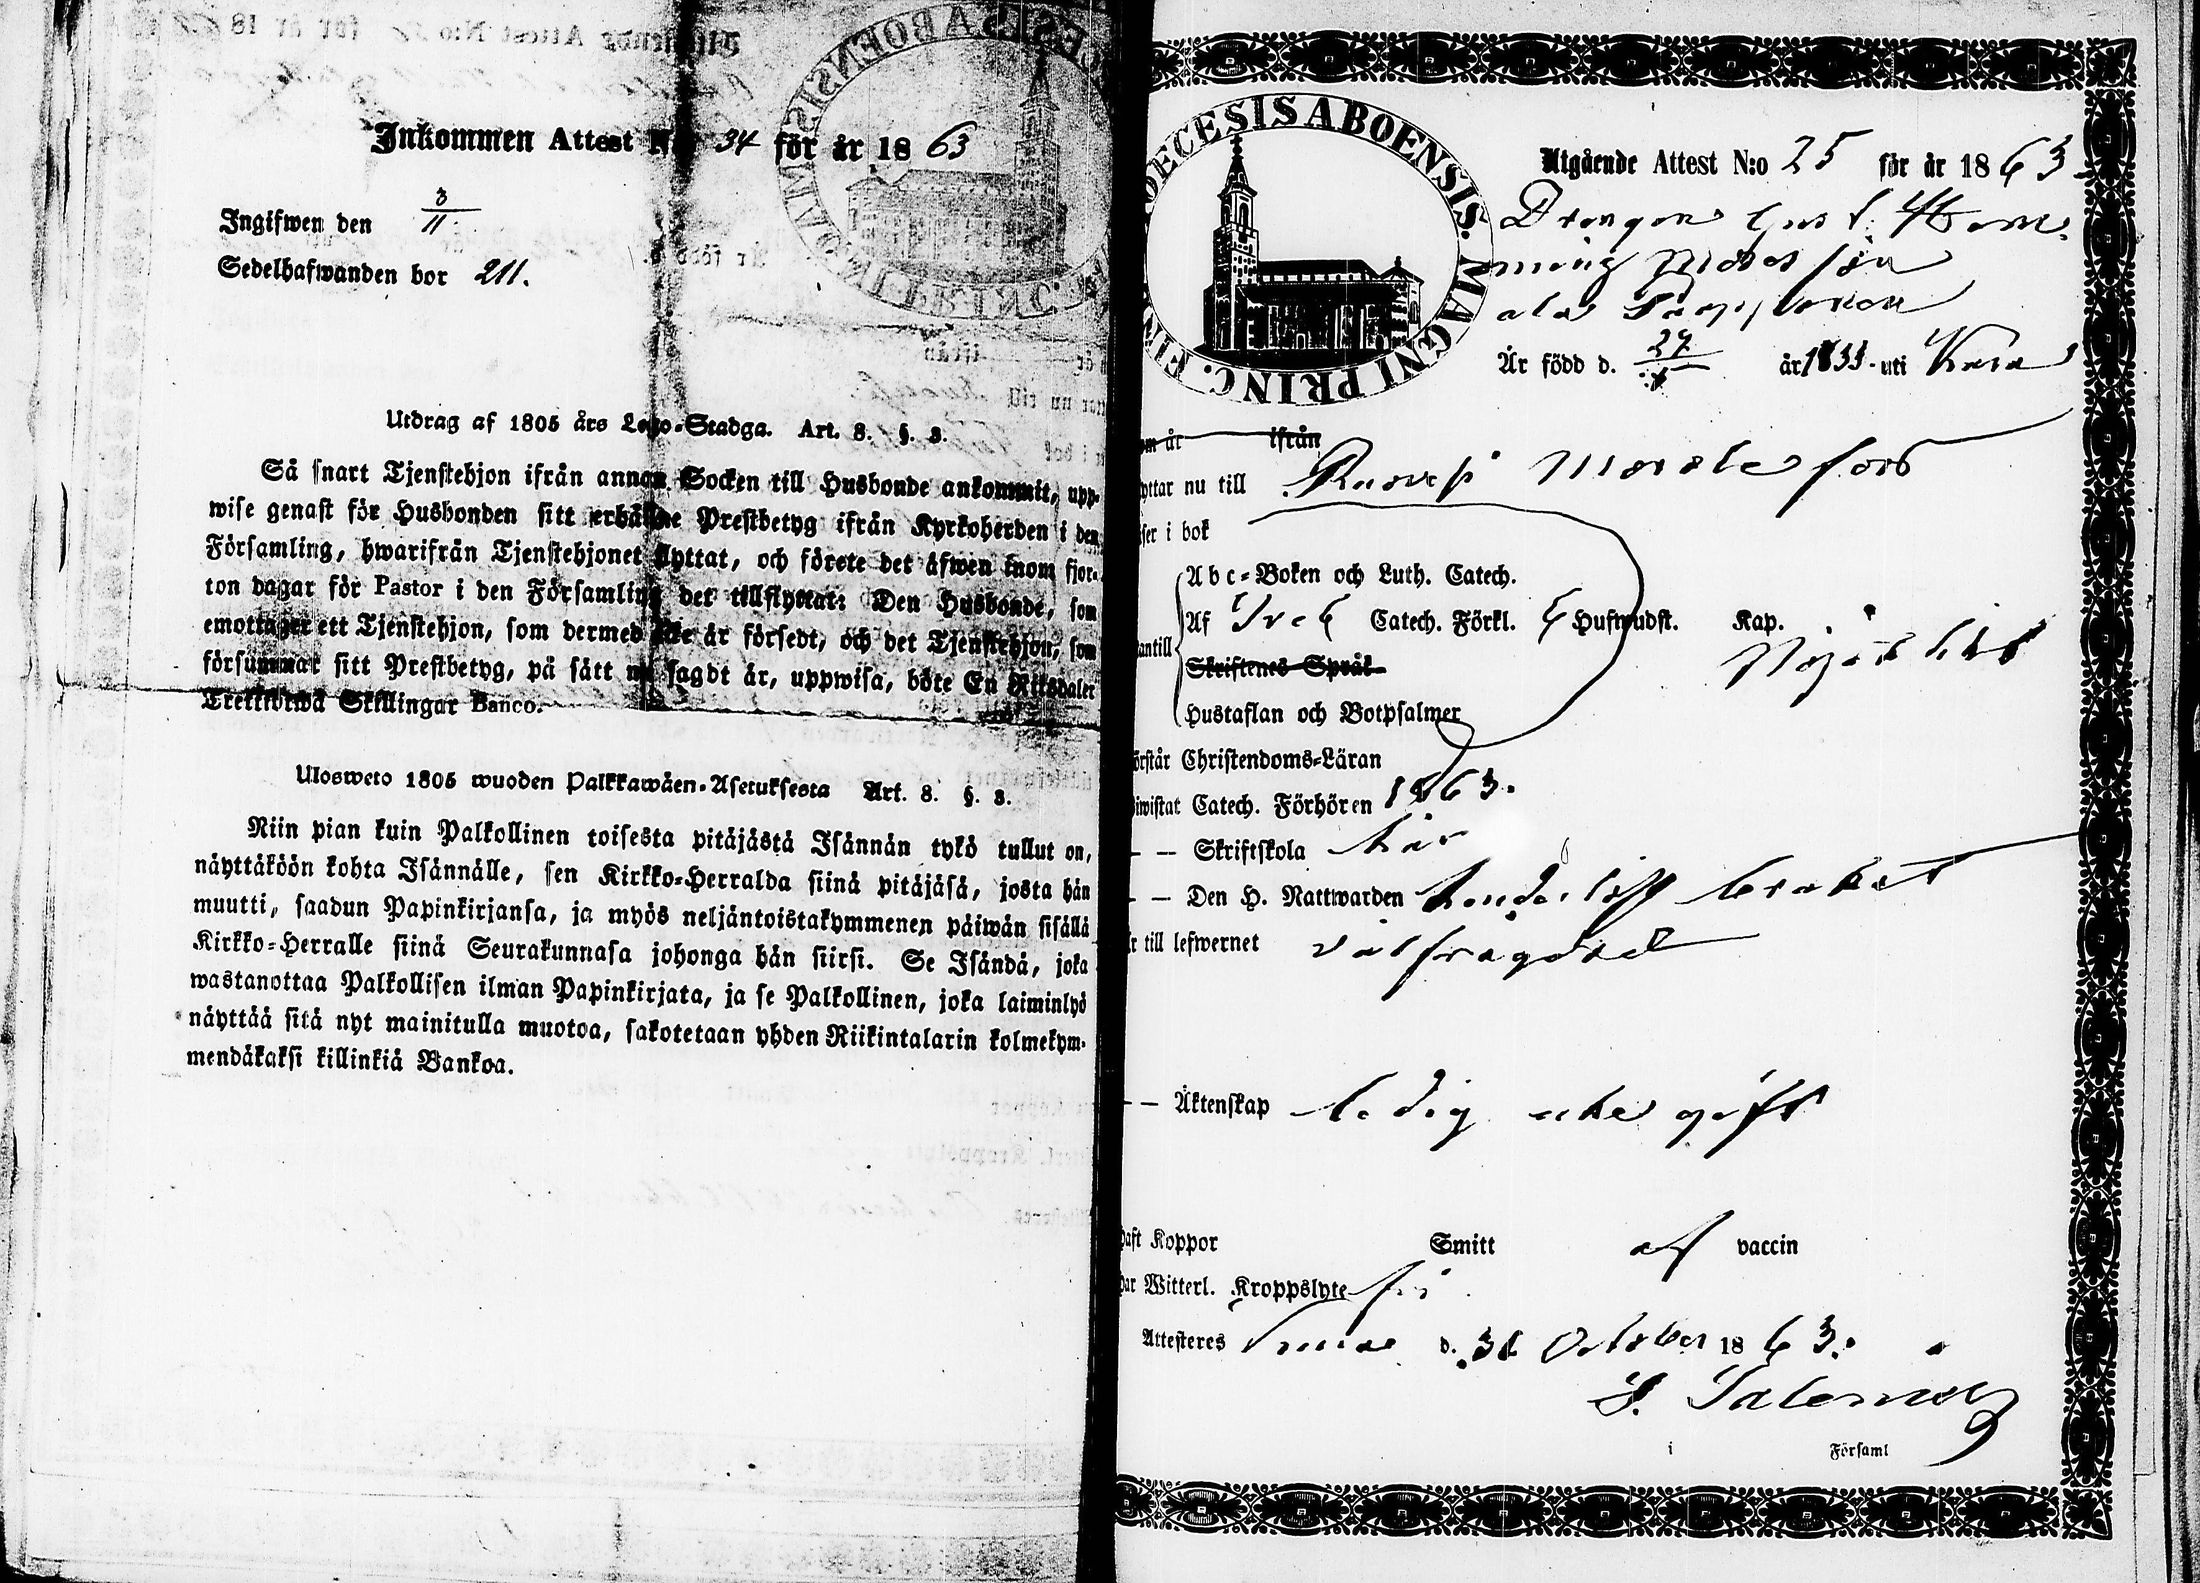 Inkommen Attest N:o 34 för år 1863
Ingifwen den 3/11
Sedelhafwanden bor 211.
Utdrag af 1805 års Lego-Stadga. Art. 8. §. 3.
Så snart Tjenstehjon ifrån annan Socken till Husbonde ankommit, upp-
wise genast för Husbonden sitt erhållne Prestbetyg ifrån Kyrkoherden i den
Församling, hwarifrån Tjenstehjonet flyttat, och förete det äfwen inom fjor-
ton dagar för Pastor i den Församling det tillflyttat: Den Husbonde, som
emottager ett Tjenstehjon, som dermed icke är försedt, och det Tjenstehjon, som
försummar sitt Prestbetyg, på sätt nu sagdt är, uppwisa, böte En Riksdaler
Trettiotwå Skillingar Banco.
Ulosweto 1805 wuoden Palkkawäen-Asetuksesta Art. 8. §. 3.
Niin pian kuin Palkollinen toisesta pitäjästä Isännän tykö tullut on,
näyttäköön kohta Isännälle, sen Kirkko-Herralda siinä pitäjäsä, josta hän
muutti, saadun Papinkirjansa, ja myös neljäntoistakymmenen päiwän sisällä
Kirkko-Herralle siinä Seurakunnasa johonga hän siirsi. Se Isändä, joka
wastanottaa Palkollisen ilman Papinkirjata, ja se Palkollinen, joka laiminlyö
näyttää sitä nyt mainitulla muotoa, sakotetaan yhden Riikintalarin kolmekym-
mendäkaksi killinkiä Bankoa.
DIOECESIS ABOENSIS. MAGNI PRINC.
Utgående Attest N:o 25 för år 1863
Drengen
Är född d. 27 år 1833. uti
om år ifrån
yttar nu till
ser i bok
Abc-Boken och Luth. Catech.
Af Catech. Förkl. 5 Hufwudst. Kap.
antill
Skriftenes Språk
Nöjaktigt
Hustaflan och Botpsalmer
örstår Christendoms-Läran
iwistat Catech. Förhören 1863.
— — Skriftskola här
— — Den H. Nattwarden
r till lefwernet välfrägdad
— — Äktenskap ledig icke gift
haft Koppor Smitt af vaccin
har Witterl. Kroppslyte fri
Attesteres d. 31 October 1863.
i Församl